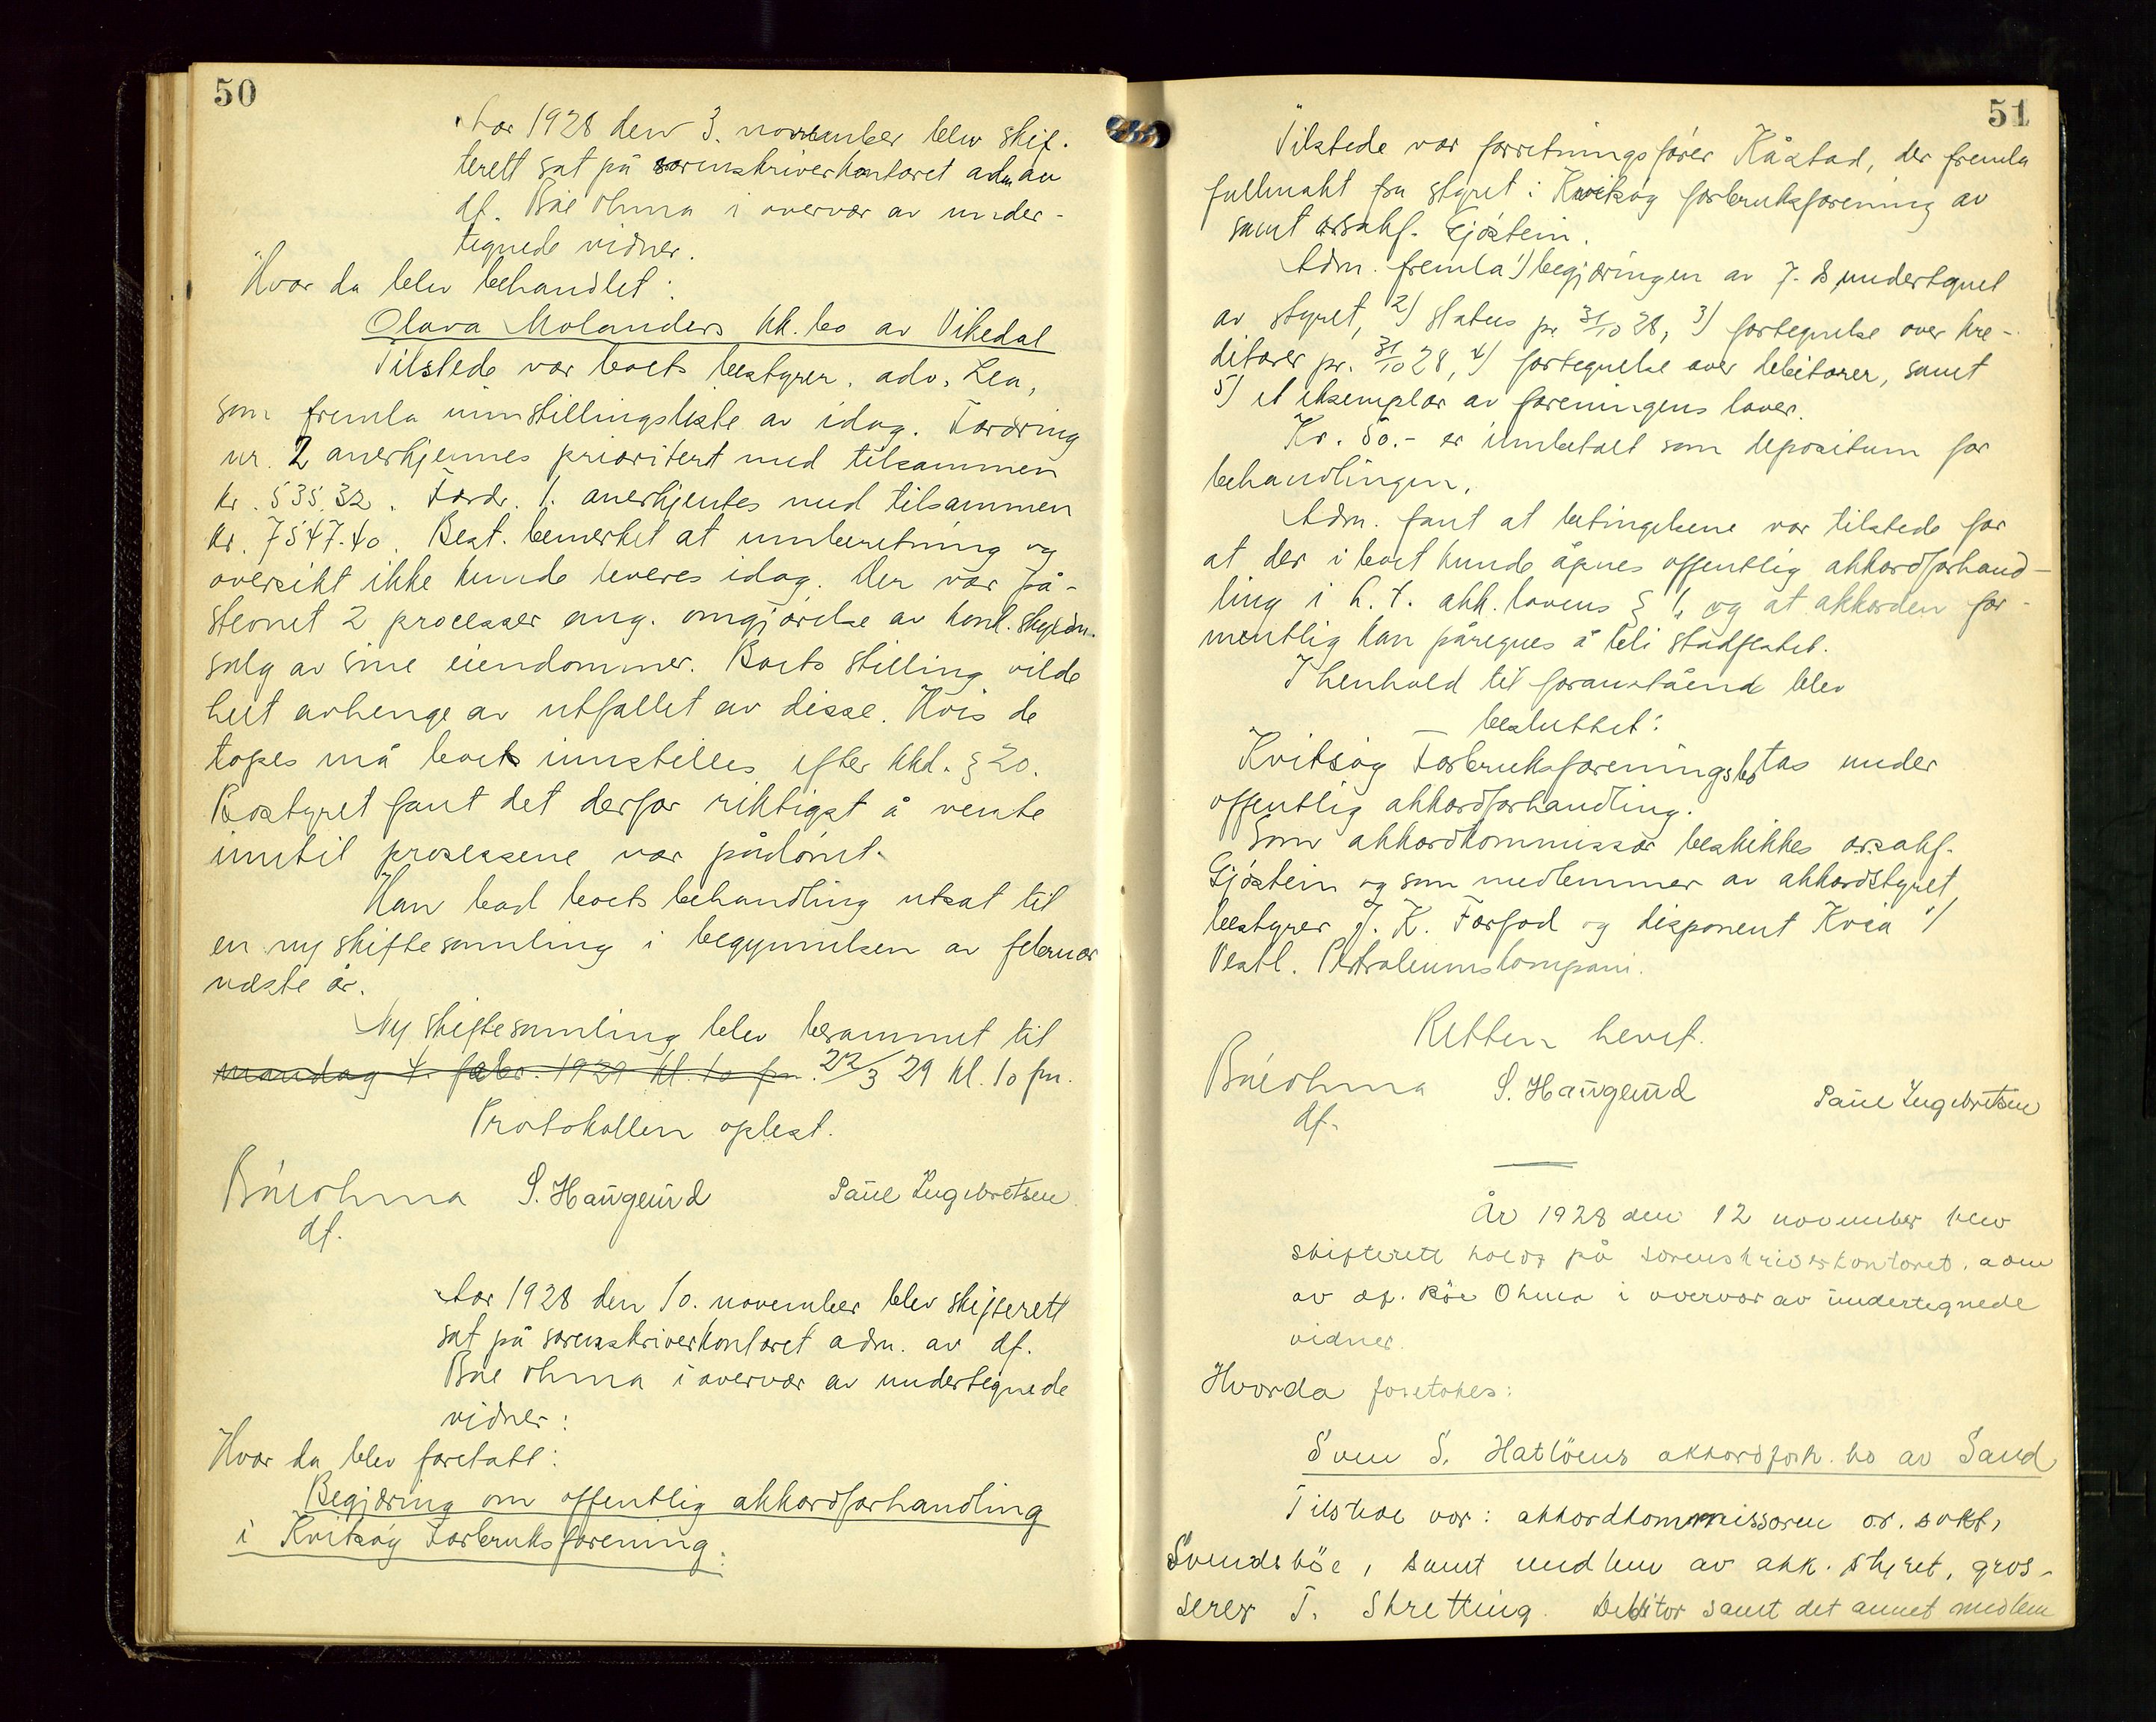 50
Aar 1928 den 3. november blev skif-
terett sat på sorenskriverkontoret adm av
df. Bøe Ohma i overvær av under-
tegnede vidner.
Hvor da blev behandlet:
Olava Molanders kk. bo av Vikedal
Tilstede var boets bestyrer, adv. Lea,
som fremla innstillingsliste av idag. Fordring
nr. 2 anerkjennes prioritert med tilsammen
kr. 535.32. Fordr. 1. anerkjentes med tilsammen
kr. 7547.40. Best. bemerket at innberetning og
oversikt ikke kunde leveres idag. Der var på-
stevnet 2 processer ang. omgjørelse av konk. skyldn.
salg av sine eiendommer. Boets stilling vilde
helt avhenge av utfallet av disse. Hvis de
tapes må boet innstilles efter kkl. § 20.
Bostyret fant det derfor riktigst å vente
inntil prosessene var pådömt.
Han bad boets behandling utsat til
en ny skiftesamling i begynnelsen av februar
næste år.
Ny skiftesamling blev berammet til
mandag 4. febr. 1929 kl. 10 fm. 22/3 29 kl. 10 fm.
Protokollen oplest.
Bøe Ohma S. Haugerud Paul Ingebretsen
df.
Aar 1928 den 10. november blev skifterett
sat på sorenskriverkontoret adm. av df.
Bøe Ohma i overvær av undertegnede
vidner:
Hvor da blev foretatt:
Begjæring om offentlig akkordforhandling
i Kvitsøy Forbruksforening:
51
Tilstede var forretningsfører Kåstad, der fremla
fullmakt fra styret i Kvitsøy forbruksforening av
samt orsakf. Gjöstein.
Adm. fremla 1) begjæringen av 7. ds undertegnet
av styret, 2) status pr 31/10 28, 3) fortegnelse over kre-
ditorer pr. 31/10 28, 4) fortegnelse over debitorer, samt
5) et eksemplar av foreningens lover.
Kr. 50.- er innbetalt som depositum for
behandlingen.
Adm. fant at betingelsene var tilstede for
at der i boet kunde åpnes offentlig akkordforhand-
ling i h. t. akk. lovens § 1, og at akkorden for-
mentlig kan påregnes å bli stadfestet.
I henhold til foranstående blev
besluttet:
Kvitsøy Forbruksforenings bo tas under
offentlig akkordforhandling.
Som akkordkommissær beskikkes orsakf.
Gjöstein og som medlemmer av akkordstyret
bestyrer J. K. Forfod og disponent Kvia i/
Vestl. Petroleumskompani.
Retten hevet.
Bøe Ohma S. Haugerud Paul Ingebretsen
df.
År 1928 den 12 november blev
skifterett holdt på sorenskriverkontoret. adm
av df. Bøe Ohma i overvær av undertegnede
vidner.
Hvorda foretokes:
Sven S. Hatlöens akkordforh. bo av Sand
Tilstede var: akkordkommissæren o.r. sakf.
Svendsböe, samt medlem av akk. styret, gros-
serer T. Skretting. Debitor samt det annet medlem